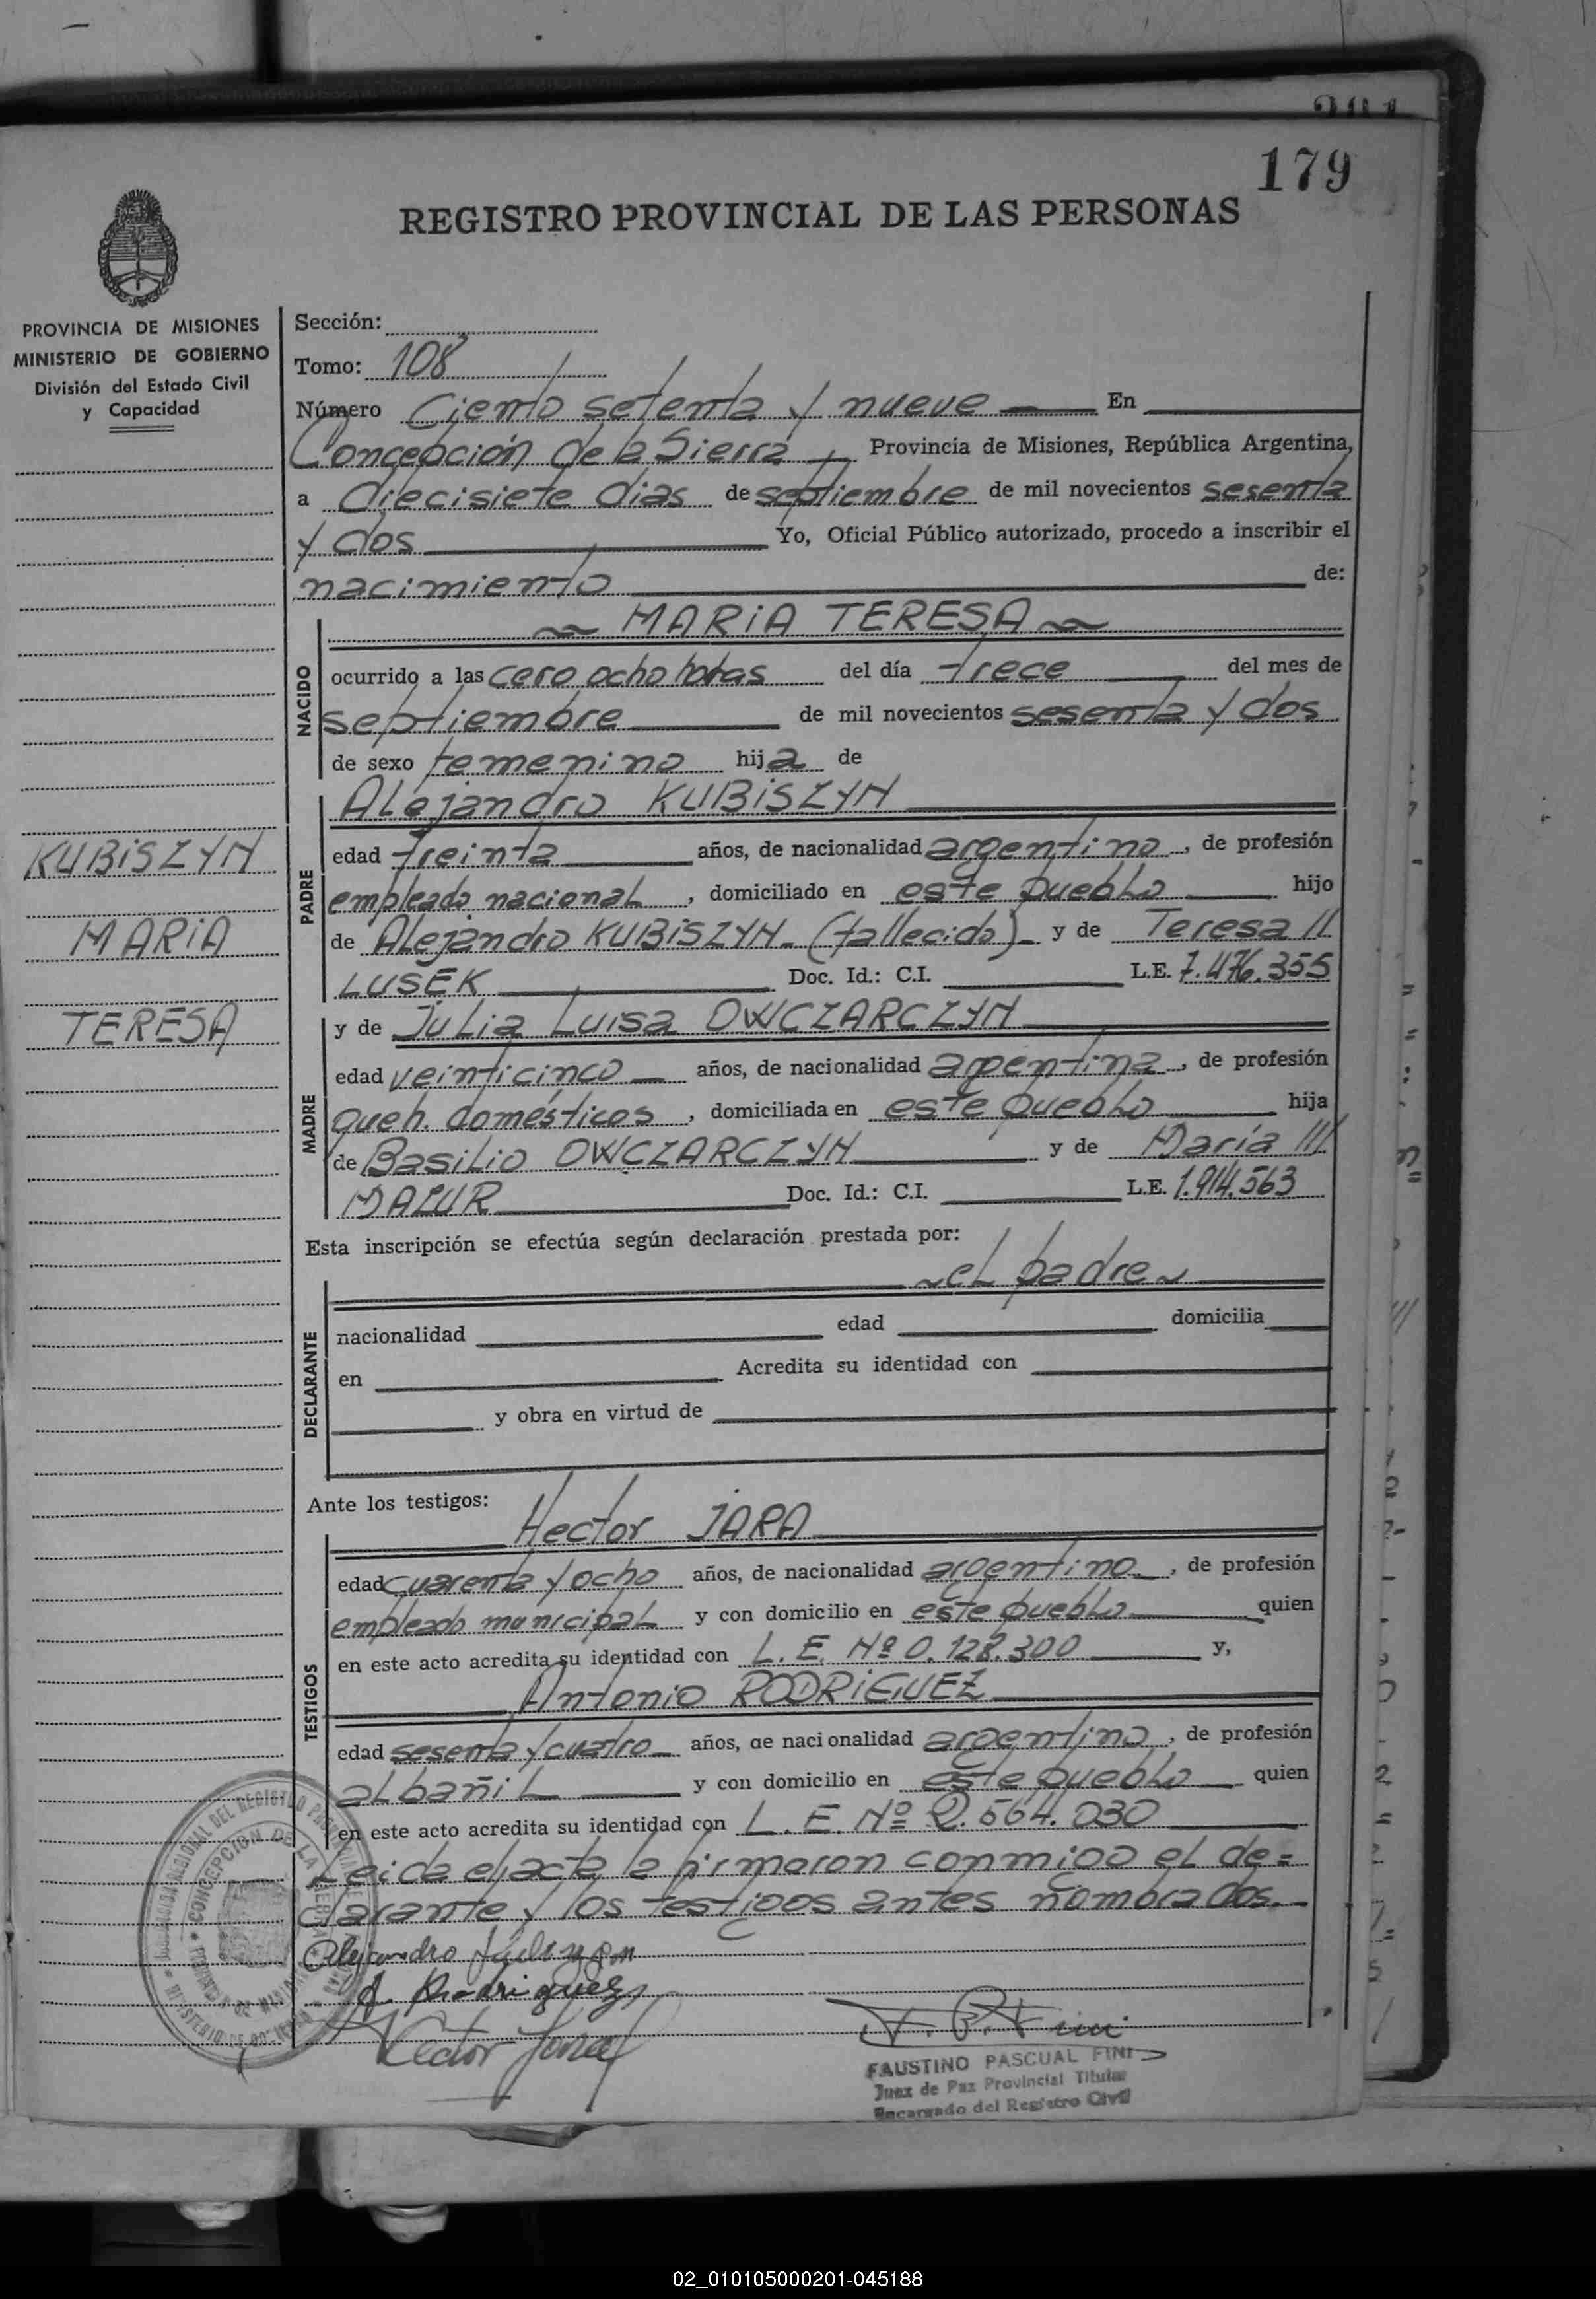 179
REGISTRO PROVINCIAL DE LAS PERSONAS
PROVINCIA DE MISIONES
MINISTERIO DE GOBIERNO
División del Estado Civil
y Capacidad
KUBISZYN
MARIA
TERESA
Sección:
Tomo: 108
Número Ciento setenta y nueve En
Concepción de la Sierra, Provincia de Misiones, República Argentina,
a diecisiete dias de septiembre de mil novecientos sesenta
y dos Yo, Oficial Público autorizado, procedo a inscribir el
nacimiento de:
MARIA TERESA
NACIDO
ocurrido a las cero ocho horas del día trece del mes de
septiembre de mil novecientos sesenta y dos
de sexo femenino hija de
Alejandro KUBISZYN
PADRE
edad treinta años, de nacionalidad argentino, de profesión
empleado nacional, domiciliado en este pueblo hijo
de Alejandro KUBISZYN (fallecido) y de Teresa
LUSEK Doc. Id.: C.I. L.E. 7.476.355
y de Julia Luisa OWCZARCZYN
MADRE
edad veinticinco años, de nacionalidad argentina, de profesión
queh. domésticos, domiciliada en este pueblo hija
de Basilio OWCZARCZYN y de María
Doc. Id.: C.I. L.E. 1.914.563
Esta inscripción se efectúa según declaración prestada por:
el padre
DECLARANTE
nacionalidad edad domicilia
en Acredita su identidad con
y obra en virtud de
Ante los testigos:
Hector JARA
TESTIGOS
edad cuarenta y ocho años, de nacionalidad argentino, de profesión
empleado municipal y con domicilio en este pueblo quien
en este acto acredita su identidad con L. E. Nº 0.128.300 y,
Antonio RODRIGUEZ
edad sesenta y cuatro años, de nacionalidad argentino, de profesión
albañil y con domicilio en este pueblo quien
en este acto acredita su identidad con L. E. Nº 2.564.030
Leida el acta la firmaron conmigo el de=
clarante y los testigos antes nombrados.
Alejandro
A. Rodriguez
Hector Jara
F. P. Fini
FAUSTINO PASCUAL FINI
Juez de Paz Provincial Titular
Encargado del Registro Civil
CONCEPCION DE LA SIERRA
02_010105000201-045188